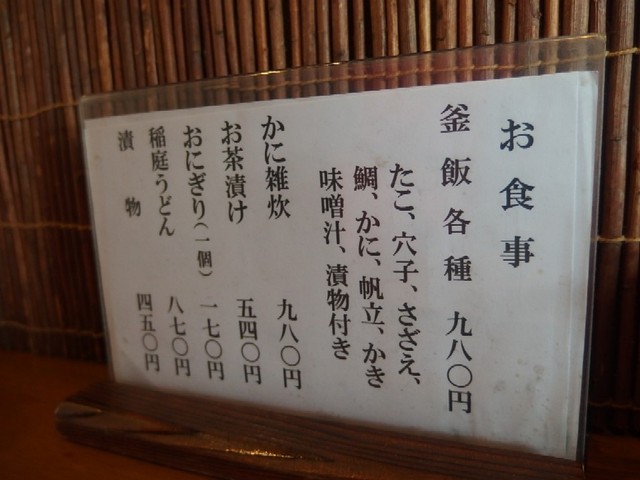 お食事
釜飯各種 九八〇円
たこ、穴子、さざえ、
鯛、かに、帆立、かき
味噌汁、漬物付き
かに雑炊 九八〇円
お茶漬け 五四〇円
おにぎり(一個) 一七〇円
稲庭うどん 八七〇円
漬物 四五〇円